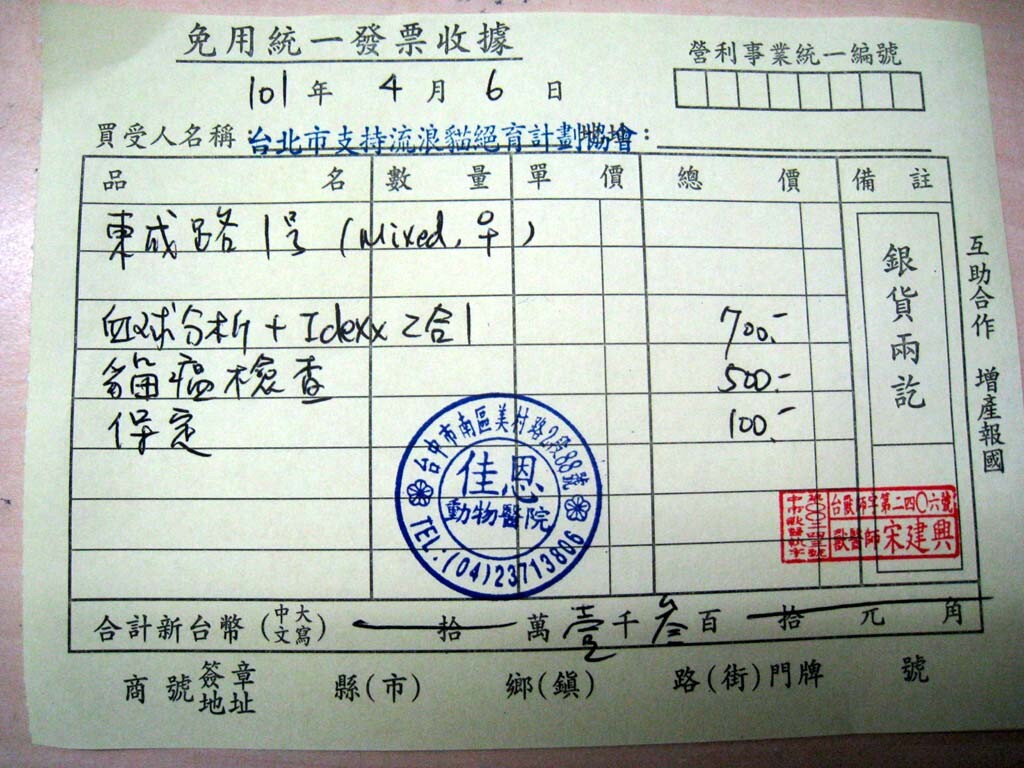 免用統一發票收據
營利事業統一編號
101年 4月 6日
買受人名稱：台北市支持流浪貓絕育計劃協會：
品名 數量 單價 總價 備註
東成路1号 (Mixed, 早)
血球分析+Idexx 2合1 700.-
貓瘟檢查 500.-
保定 100.-
銀貨兩訖
互助合作 增產報國
台中市南區美村路2段88號
佳恩
動物醫院
TEL:(04)23713806
台獸師字第二四〇六號
獸醫師 宋建興
合計新台幣(中文大寫) 拾 萬 壹 千 叁 百 拾 元 角
商號簽章地址 縣(市) 鄉(鎮) 路(街)門牌 號